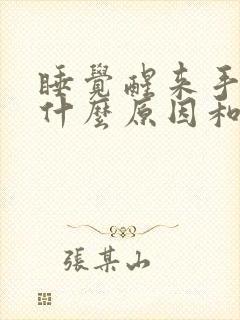 睡覺醒來手
什麼原因和
張某山